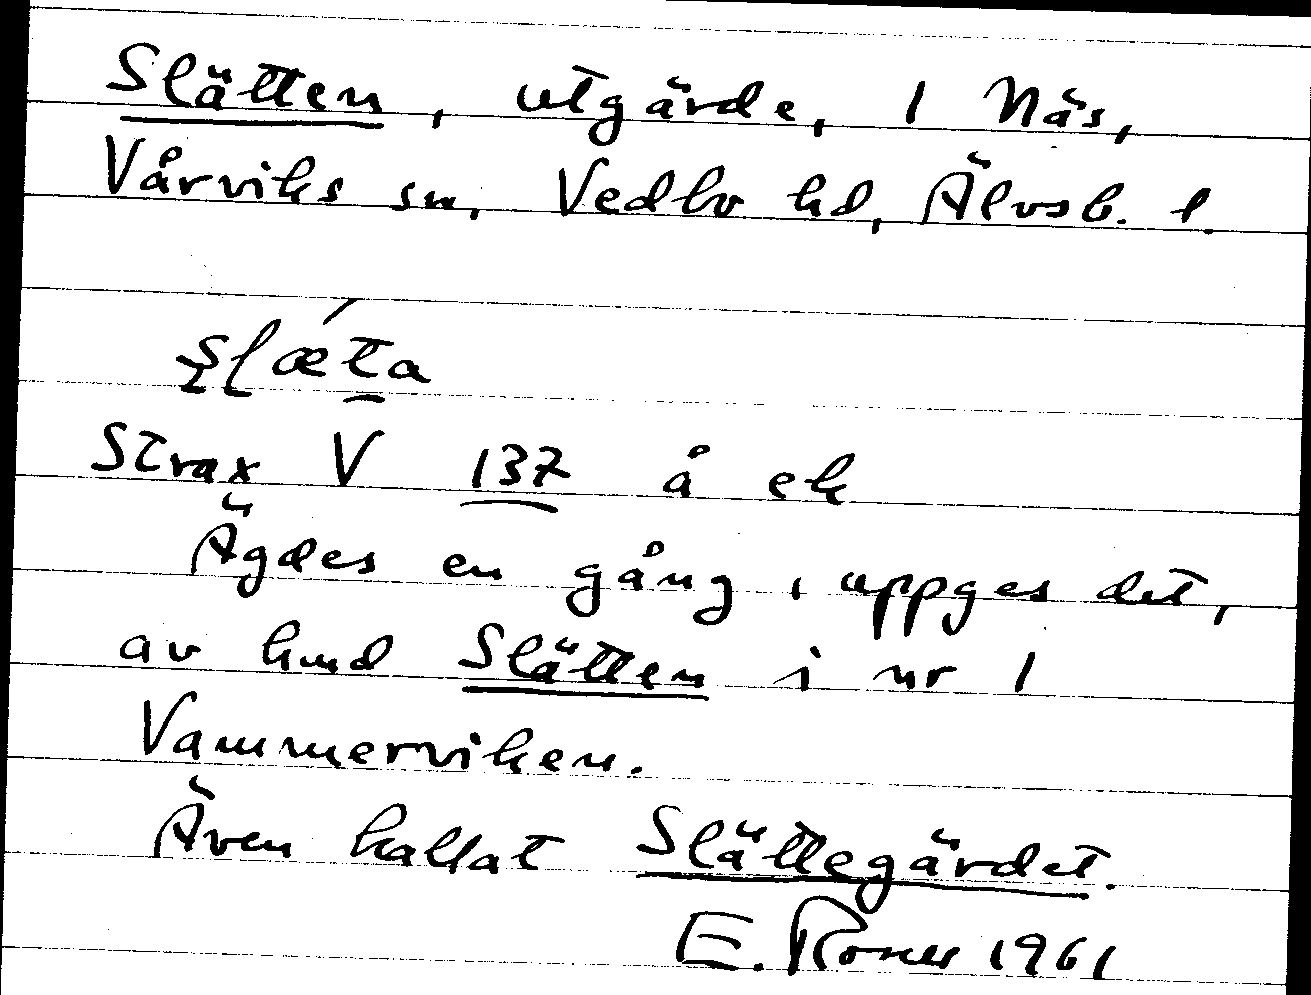 Slätten, utgärde, 1 Näs,
Vårviks sn, Vedbo hd, Älvsb. l.
slǽta
Strax V 137 å ek
Ägdes en gång, uppges det,
av hmd Slätten i nr 1
Vammerviken.
Även kallat Slättegärdet.
E. 1961